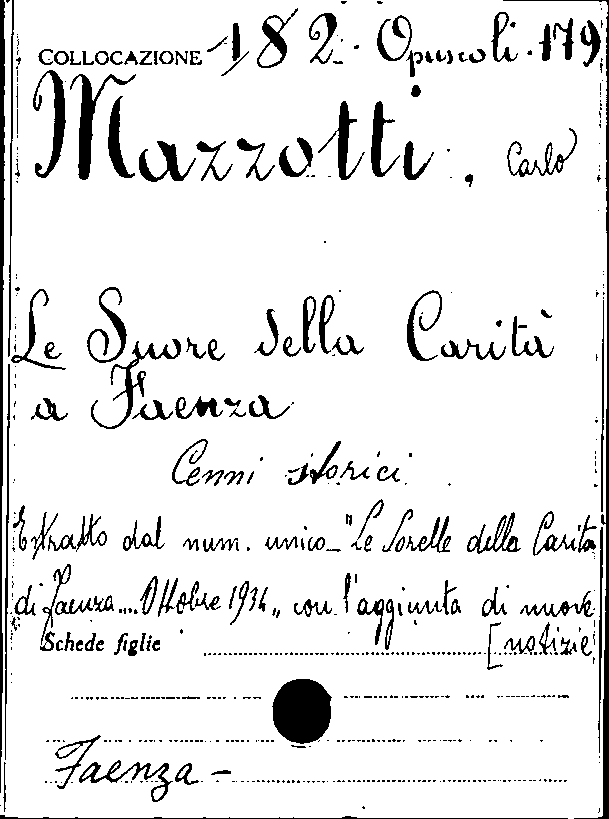 COLLOCAZIONE 182. Opuscoli. 179
Mazzotti, Carlo
Le Suore della Carità
a Faenza
Cenni storici
Extratto dal num. unico_ "Le Sorelle della Carità
di Faenza.... Ottobre 1934,, con l'aggiunta di nuove
Schede figlie [notizie
Faenza -